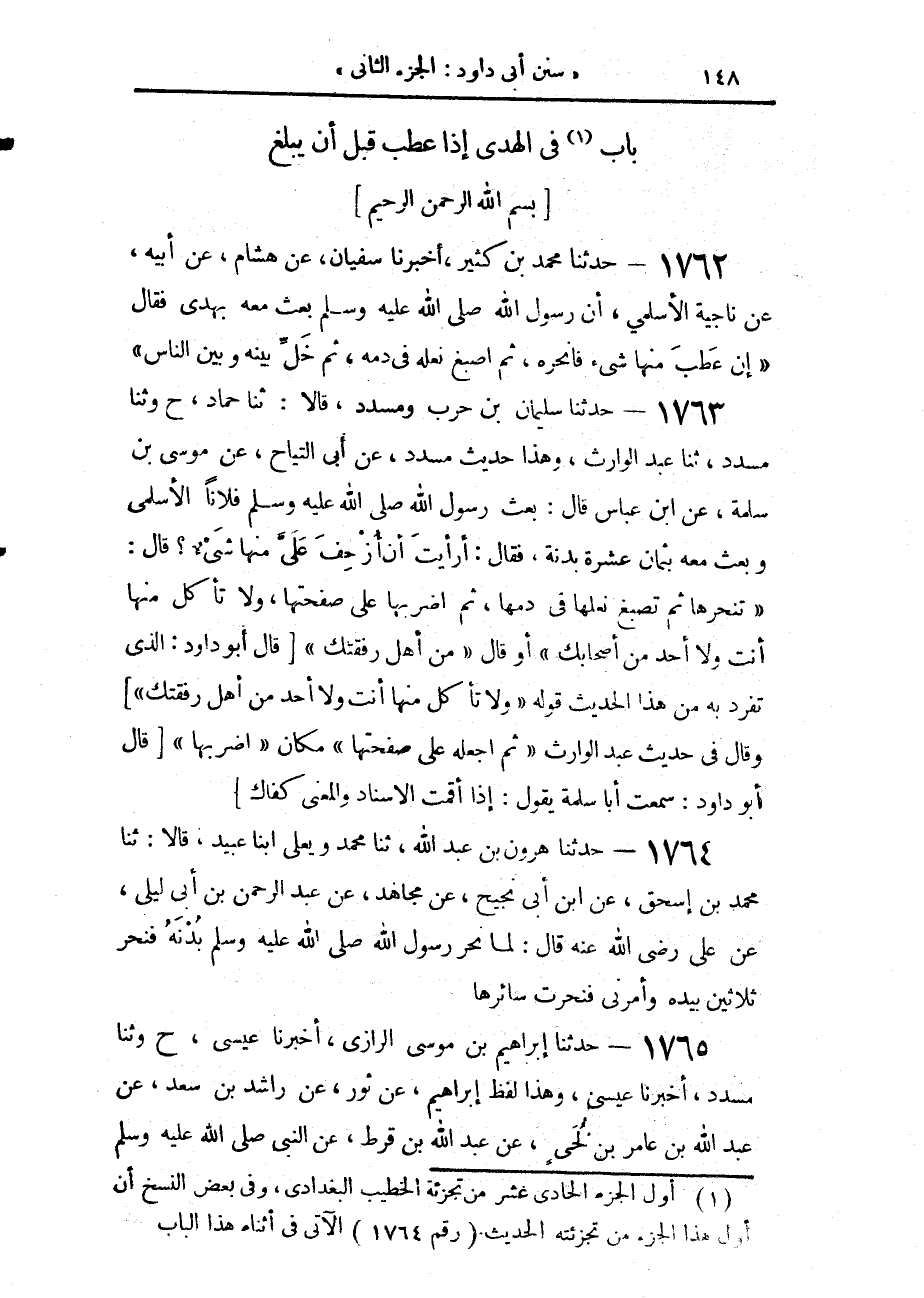 ١٤٨ « سنن أبى داود : الجزء الثانى »
باب (١) فى الهدى إذا عطب قبل أن يبلغ
[ بسم الله الرحمن الرحيم ]
١٧٦٢ – حدثنا محمد بن كثير ، أخبرنا سفيان، عن هشام ، عن أبيه ،
عن ناجية الأسلمي ، أن رسول الله صلى الله عليه وسلم بعث معه بهدى فقال
« إن عَطَبَ منها شىء فانحره ، ثم اصبغ نعله فى دمه ، ثم خَلِّ بينه و بين الناس »
١٧٦٣ – حدثنا سليمان بن حرب ومسدد ، قالا : ثنا حماد ، ح وثنا
مسدد ، ثنا عبد الوارث ، وهذا حديث مسدد ، عن أبى التياح ، عن موسى بن
سلمة ، عن ابن عباس قال : بعث رسول الله صلى الله عليه وسلم فلاناً الأسلمى
و بعث معه بثمان عشرة بدنة ، فقال : أرأيتَ أن أُزْحِفَ عَلَىَّ منها شىْء ؟ قال :
« تنحرها ثم تصبغ نعلها فى دمها ، ثم اضربها على صفحتها، ولا تأكل منها
أنت ولا أحد من أصحابك » أو قال « من أهل رفقتك » [ قال أبو داود : الذى
تفرد به من هذا الحديث قوله « ولا تأكل منها أنت ولا أحد من أهل رفقتك»]
وقال فى حديث عبد الوارث « ثم اجعله على صفحتها » مكان « اضربها » [ قال
أبو داود : سمعت أبا سلمة يقول : إذا أقمت الاسناد والمعنى كفاك ]
١٧٦٤ – حدثنا هرون بن عبد الله ، ثنا محمد و يعلى ابنا عبيد ، قالا : ثنا
محمد بن إسحق ، عن ابن أبى نجيح ، عن مجاهد ، عن عبد الرحمن بن أبى ليلى ،
عن على رضى الله عنه قال : لما نحر رسول الله صلى الله عليه وسلم بُدْنَهُ فنحر
ثلاثين بيده وأمرنى فنحرت سائرها
١٧٦٥ – حدثنا إبراهيم بن موسى الرازى ، أخبرنا عيسى ، ح وثنا
مسدد ، أخبرنا عيسى ، وهذا لفظ إبراهيم ، عن ثور ، عن راشد بن سعد ، عن
عبد الله بن عامر بن لُحَىٍ ، عن عبد الله بن قرط ، عن النبى صلى الله عليه وسلم
(١) أول الجزء الحادى عشر من تجزئة الخطيب البغدادى ، وفى بعض النسخ أن
أول هذا الجزء من تجزئته الحديث ( رقم ١٧٦٤ ) الآتى فى أثناء هذا الباب